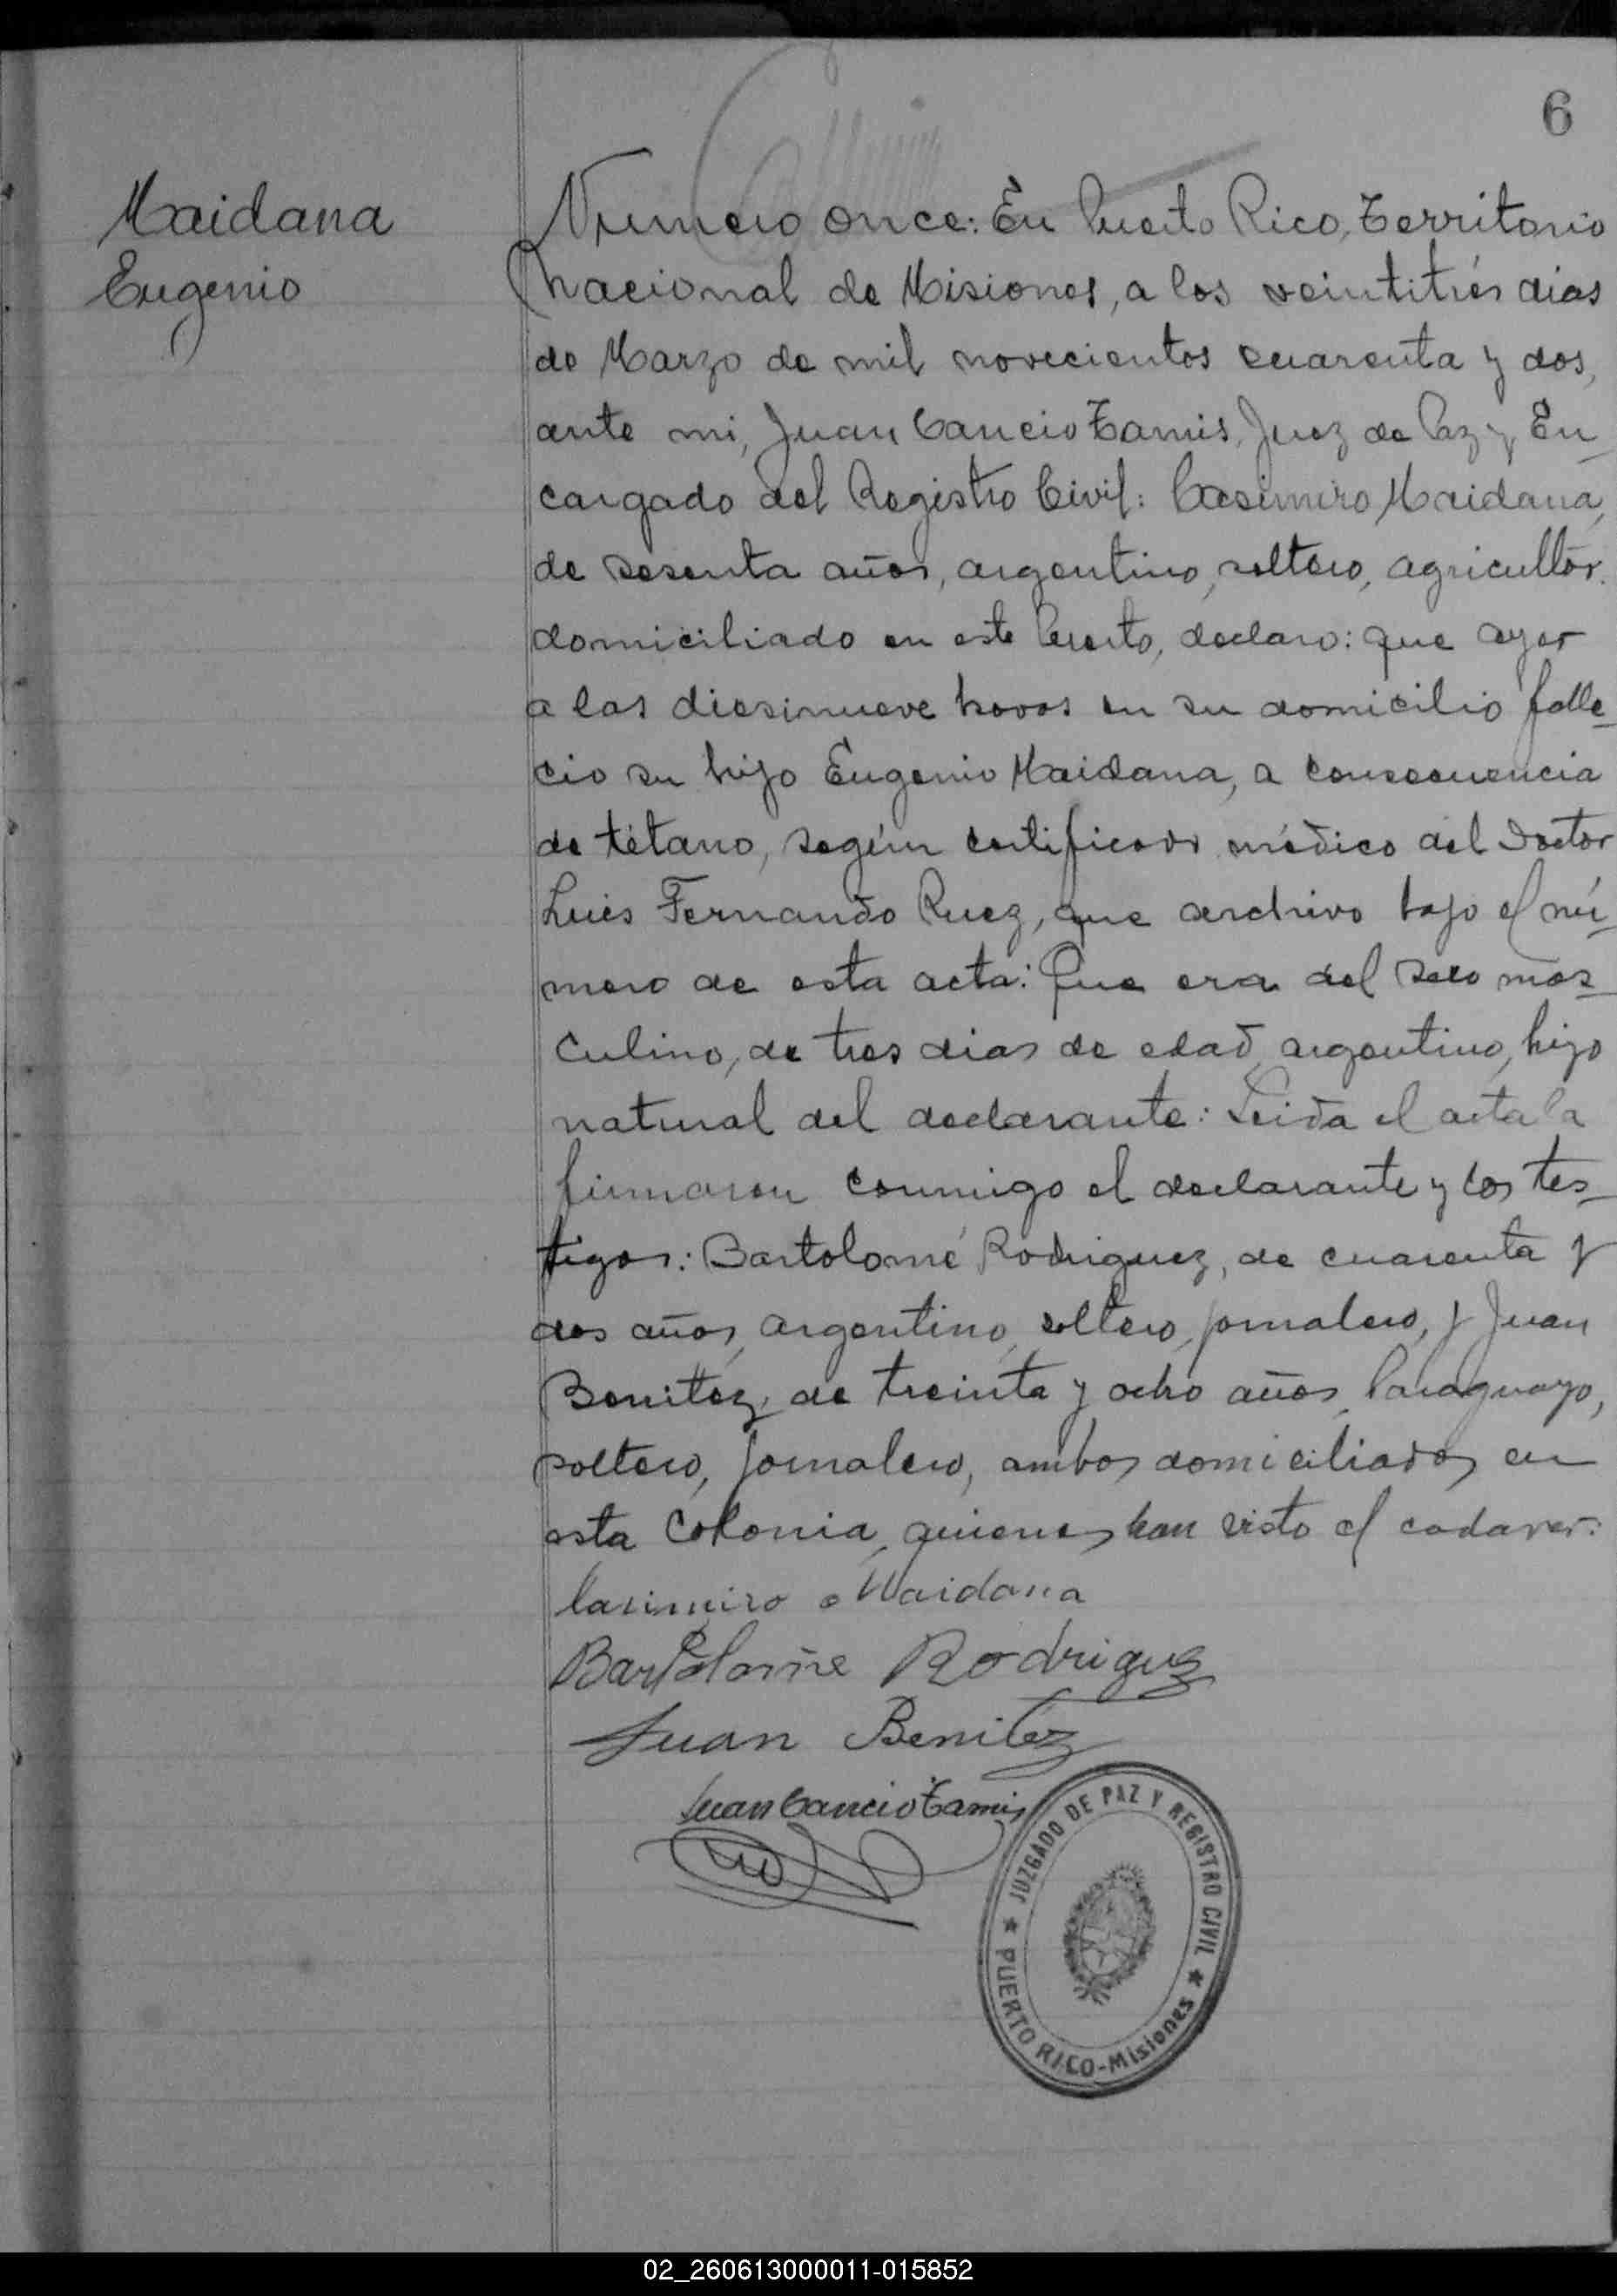 6
Maidana
Eugenio
Numero once: En Puerto Rico, Territorio
nacional de Misiones, a los veintitrés dias
de Marzo de mil novecientos cuarenta y dos,
ante mi, Juan Cancio Tamis, Juez de Paz y En
cargado del Registro Civil: Casimiro Maidana,
de sesenta años, argentino, soltero, agricultor.
domiciliado en este Puerto, declaro: que ayer
a las diesinueve horas en su domicilio falle
cio su hijo Eugenio Maidana, a consecuencia
de tétano, según certificado médico del Doctor
Luis Fernando Ruez, que archivo bajo el nú
mero de esta acta: Que era del sexo mas
culino, de tres dias de edad, argentino, hijo
natural del declarante: Leida el acta la
firmaron conmigo el declarante y los tes
tigos: Bartolomé Rodriguez, de cuarenta y
dos años, argentino, soltero, jornalero, y Juan
Benitez, de treinta y ocho años, Paraguayo,
soltero, jornalero, ambos domiciliados en
esta Colonia, quienes han visto el cadaver:
Casimiro Maidana
Bartolome Rodriguz
Juan Benitez
Juan Cancio Tamis
JUZGADO DE PAZ Y REGISTRO CIVIL
PUERTO RICO-Misiones
02_260613000011-015852